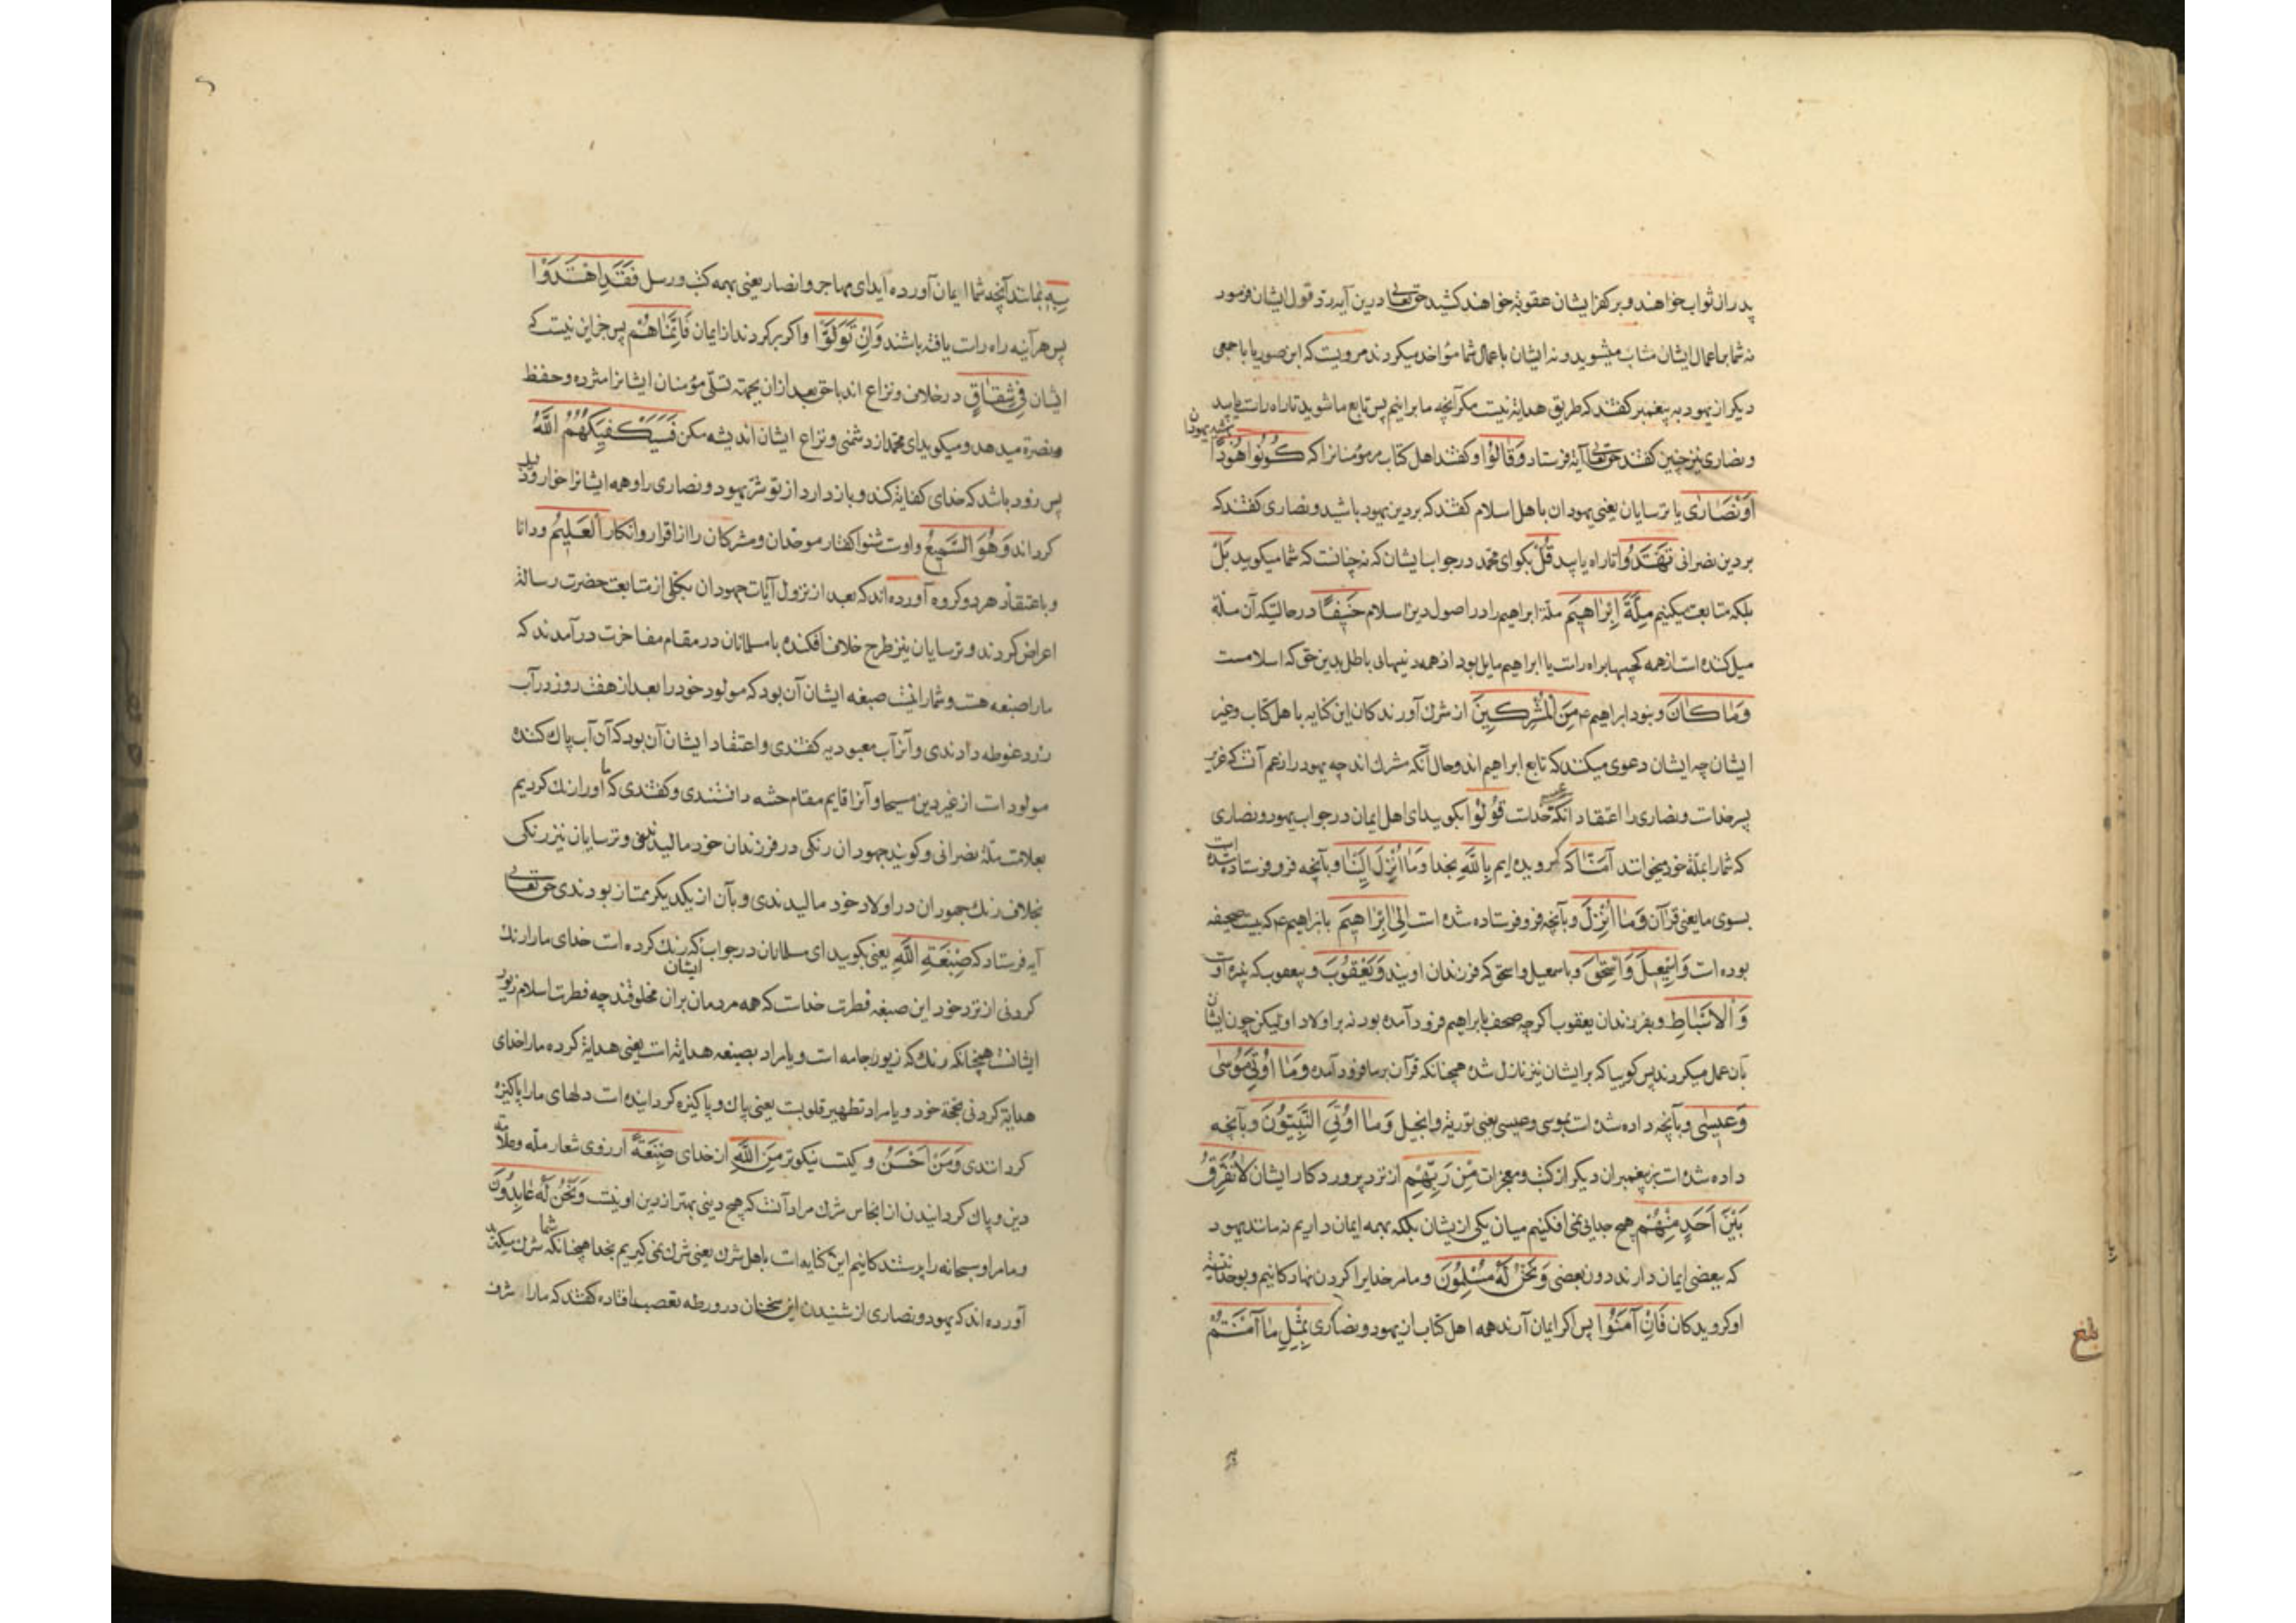 پدر از ثواب خواهند و بر کفر ایشان عقوبة خواهند کشید حق تعالی درین آیه رد قول ایشان فرمود
نه شما باعمال ایشان مثاب میشوید و نه ایشان باعمال شما مؤاخذ میکردند مرویست که ابن صوریا با جمعی
دیکر از یهود به پیغمبر کفتند که طریق هدایة نیست مکر آنچه ما برانیم پس تابع ما شوید تا راه راست یابید
و نصاری نیز چنین کفتند حق تعالی آیة فرستاد وَقَالُوْا و کفتند اهل کتاب مر مؤمنانرا که كُوْنُوْا هُوْدًا
اَوْ نَصَارٰى یا ترسایان یعنی یهودان با اهل اسلام کفتند که بر دین یهود باشید و نصاری کفتند که
بر دین نصرانی تَهْتَدُوا تا راه یابید قُلْ بکو ای محمد در جواب ایشان که نه چنانست که شما میکویید بَلْ
بلکه متابعت میکنیم مِلَّةَ اِبْرَاهِيْمَ ملة ابراهیم را در اصول دین اسلام حَنِيْفًا در حالتیکه آن ملة
میل کننده است از همه کجیها براه راست یا ابراهیم مایل بود از همه دنیهای باطل بدین حق که اسلامست
وَمَا كَانَ و نبود ابراهیم ع مِنَ الْمُشْرِكِيْنَ از شرك آورندکان این کنایه با اهل کتاب و غیر
ایشان چه ایشان دعوی میکنند که تابع ابراهیم اند و حال آنکه مشرك اند چه یهود را زعم آنست که عزیر
پسر خداست و نصاری را اعتقاد انکه خداست قُوْلُوْا بکویید ای اهل ایمان در جواب یهود و نصاری
که شما را بملة خود میخوانند آمَنَّا که کرویده ایم بِاللّٰهِ بخدا وَمَا اُنْزِلَ اِلَيْنَا و بآنچه فرو فرستاده شده است
بسوی ما یعنی قرآن وَمَا اُنْزِلَ و بآنچه فرو فرستاده شده است اِلٰى اِبْرَاهِيْمَ بابراهیم ع که بیست صحیفه
بوده است وَاِسْمٰعِيْلَ وَاِسْحٰقَ و باسمعیل و اسحق که فرزندان اویند وَيَعْقُوْبَ و بیعقوب که نبیرهٔ اوست
وَالْاَسْبَاطِ و بفرزندان یعقوب اکرچه صحف بابراهیم فرود آمده بود نه بر اولاد او لیکن چون ایشان
بآن عمل میکردند پس کوییا که بر ایشان نیز نازل شده همچنانکه قرآن بر ما فرود آمده وَمَا اُوْتِيَ مُوْسٰى
وَعِيْسٰى و بآنچه داده شده است بموسی و عیسی یعنی توریة و انجیل وَمَا اُوْتِيَ النَّبِيُّوْنَ و بآنچه
داده شده است بپیغمبران دیکر از کتب و معجزات مِنْ رَبِّهِمْ از نزد پروردکار ایشان لَا نُفَرِّقُ
بَيْنَ اَحَدٍ مِنْهُمْ هیچ جدایی نمی افکنیم میان یکی از یشان بلکه بهمه ایمان داریم نه مانند یهود
که ببعضی ایمان دارند دون بعضی وَنَحْنُ لَهُ مُسْلِمُوْنَ و ما مر خدایرا کردن نهادکانیم و بوحدانیة
او کرویدکان فَاِنْ آمَنُوْا پس اکر ایمان آرند همه اهل کتاب از یهود و نصاری بِمِثْلِ مَا آمَنْتُمْ
بلغ
بِهِ بمانند آنچه شما ایمان آورده اید ای مهاجر و انصار یعنی بهمه کتب و رسل فَقَدِ اهْتَدَوْا
پس هر آینه راه راست یافته باشند وَاِنْ تَوَلَّوْا و اکر بر کردند از ایمان فَاِنَّمَا هُمْ پس جز این نیست که
ایشان فِيْ شِقَاقٍ در خلاف و نزاع اند با حق بعد ازان بجهة تسلّی مؤمنان ایشانرا مژده و حفظ
و نصرة میدهد و میکوید ای محمد از دشمنی و نزاع ایشان اندیشه مکن فَسَيَكْفِيْكَهُمُ اللّٰهُ
پس زود باشد که خدای کفایة کند و باز دارد از تو شر یهود و نصاری را و همه ایشانرا خوار و ذلیل
کرداند وَهُوَ السَّمِيْعُ و اوست شنوا کفتار موحدان و مشرکان را از اقرار و انکار الْعَلِيْمُ و دانا
و باعتقاد هر دو کروه آورده اند که بعد از نزول آیات جهودان بکلی از متابعت حضرت رسالة
اعراض کردند و ترسایان نیز طرح خلاف افکنده با مسلمانان در مقام مفاخرت درآمدند که
ما را صبغه هست و شما را نیست صبغه ایشان آن بود که مولود خود را بعد از هفت روز در آب
زرد غوطه دادندی و آنرا آب معبودیه کفتندی و اعتقاد ایشان آن بود که آن آب پاك کننده
مولود است از غیر دین مسیحا و آنرا قایم مقام ختنه دانستندی و کفتندی که ما او را رنك کردیم
بعلامت ملة نصرانی و کویند جهودان رنکی در فرزندان خود مالیدندی و ترسایان نیز رنکی
بخلاف رنك جهودان در اولاد خود مالیدندی و بآن از یکدیکر ممتاز بودندی حق تعالی
آیه فرستاد که صِبْغَةَ اللّٰهِ یعنی بکویید ای مسلمانان در جواب ایشان که رنك کرده است خدای ما را رنك
کردنی از نزد خود این صبغه فطرت خداست که همه مردمان بران مخلوقند چه فطرت اسلام زیور
ایشانست همچنانکه رنك که زیور جامه است و یا مراد بصبغه هدایة است یعنی هدایة کرده ما را خدای
هدایة کردنی بحجة خود و یا مراد تطهیر قلوبست یعنی پاك و پاکیزه کردانیده است دلهای ما را پاکیزه
کردانندی وَمَنْ اَحْسَنُ و کیست نیکوتر مِنَ اللّٰهِ از خدای صِبْغَةً از روی شعار ملّه و علامة
دین و پاك کردانیدن از انجاس شرك مراد آنست که هیچ دینی بهتر از دین او نیست وَنَحْنُ لَهُ عَابِدُوْنَ
و ما مر او سبحانه را پرستندکانیم این کنایه است باهل شرك یعنی شرك نمی کیریم بخدا همچنانکه شما شرك میکنید
آورده اند که یهود و نصاری از شنیدن این سخنان در ورطه تعصب افتاده کفتند که ما را شرف